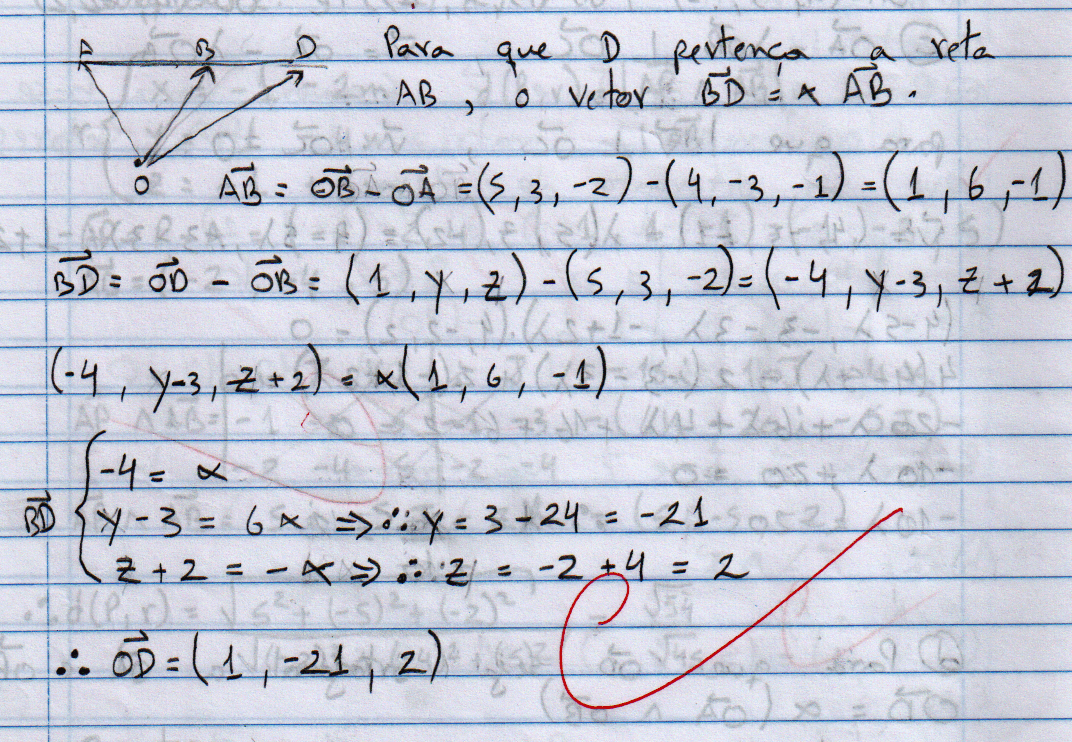 A B D Para que D pertença a reta
AB, o vetor \vec{BD} = α \vec{AB}.
O \vec{AB} = \vec{OB} - \vec{OA} = (5, 3, -2) - (4, -3, -1) = (1, 6, -1)
\vec{BD} = \vec{OD} - \vec{OB} = (1, y, z) - (5, 3, -2) = (-4, y-3, z+2)
(-4, y-3, z+2) = α(1, 6, -1)
-4 = α
\vec{BD} { y - 3 = 6α ⇒ ∴ y = 3 - 24 = -21
z + 2 = -α ⇒ ∴ z = -2 + 4 = 2
∴ \vec{OD} = (1, -21, 2)